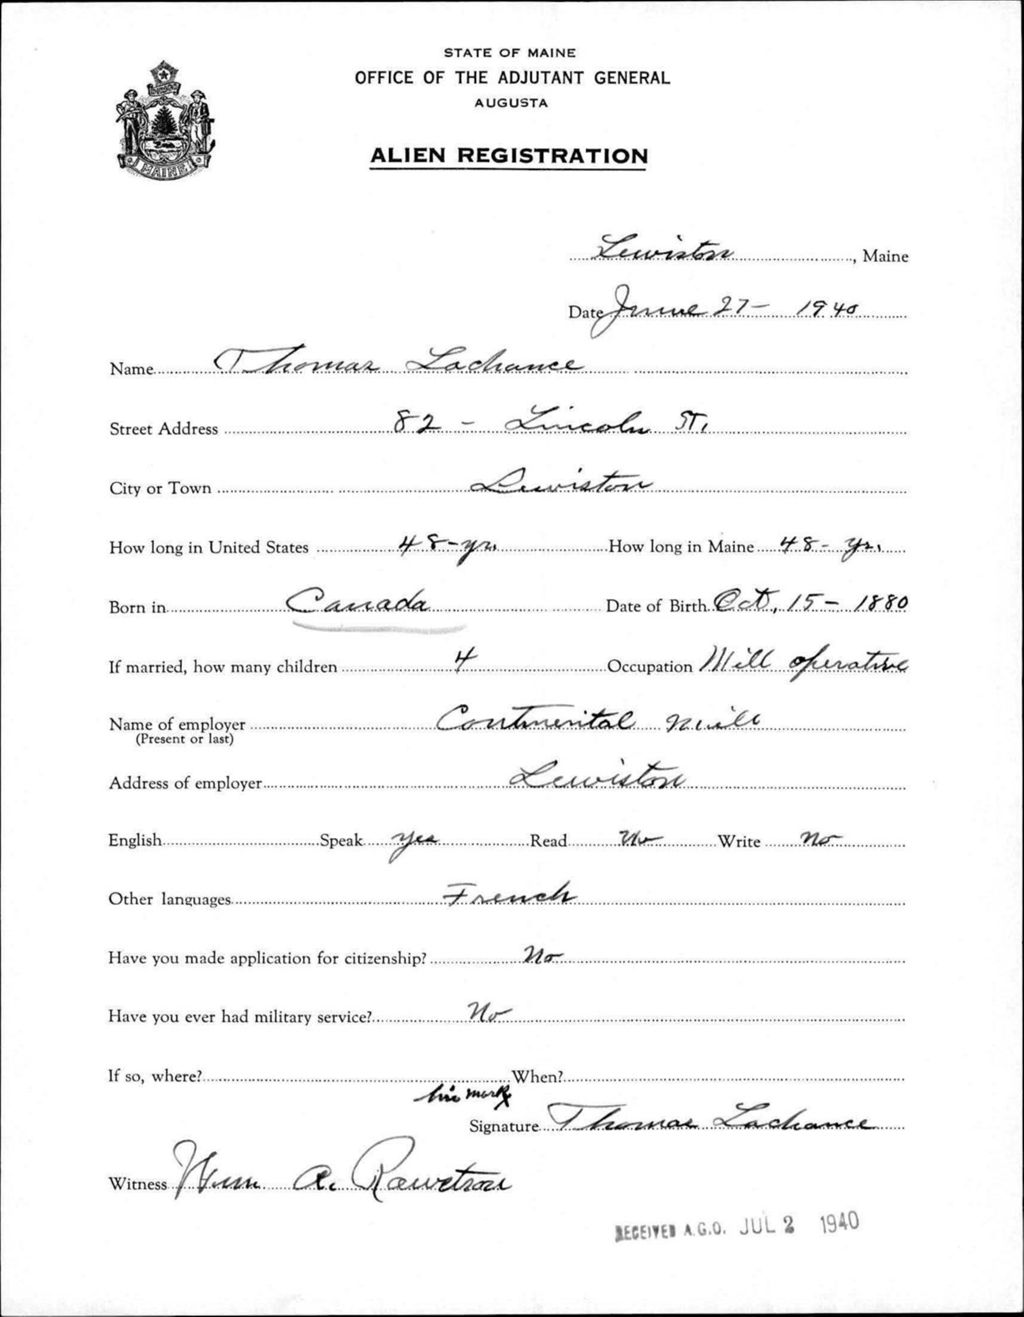 STATE OF MAINE
OFFICE OF THE ADJUTANT GENERAL
AUGUSTA
ALIEN REGISTRATION
MAINE
Lewiston, Maine
Date June 27 - 1940
Name Thomas Lachance
Street Address 82 - Lincoln St.
City or Town Lewiston
How long in United States 48-yrs. How long in Maine 48-yrs.
Born in Canada Date of Birth Oct. 15 - 1880
If married, how many children 4 Occupation Mill operative
Name of employer Continental Mill
(Present or last)
Address of employer Lewiston
English Speak yes Read No Write No
Other languages French
Have you made application for citizenship? No
Have you ever had military service? No
If so, where? When?
his mark X
Signature Thomas Lachance
Witness Wm. A.
RECEIVED A.G.O. JUL 2 1940